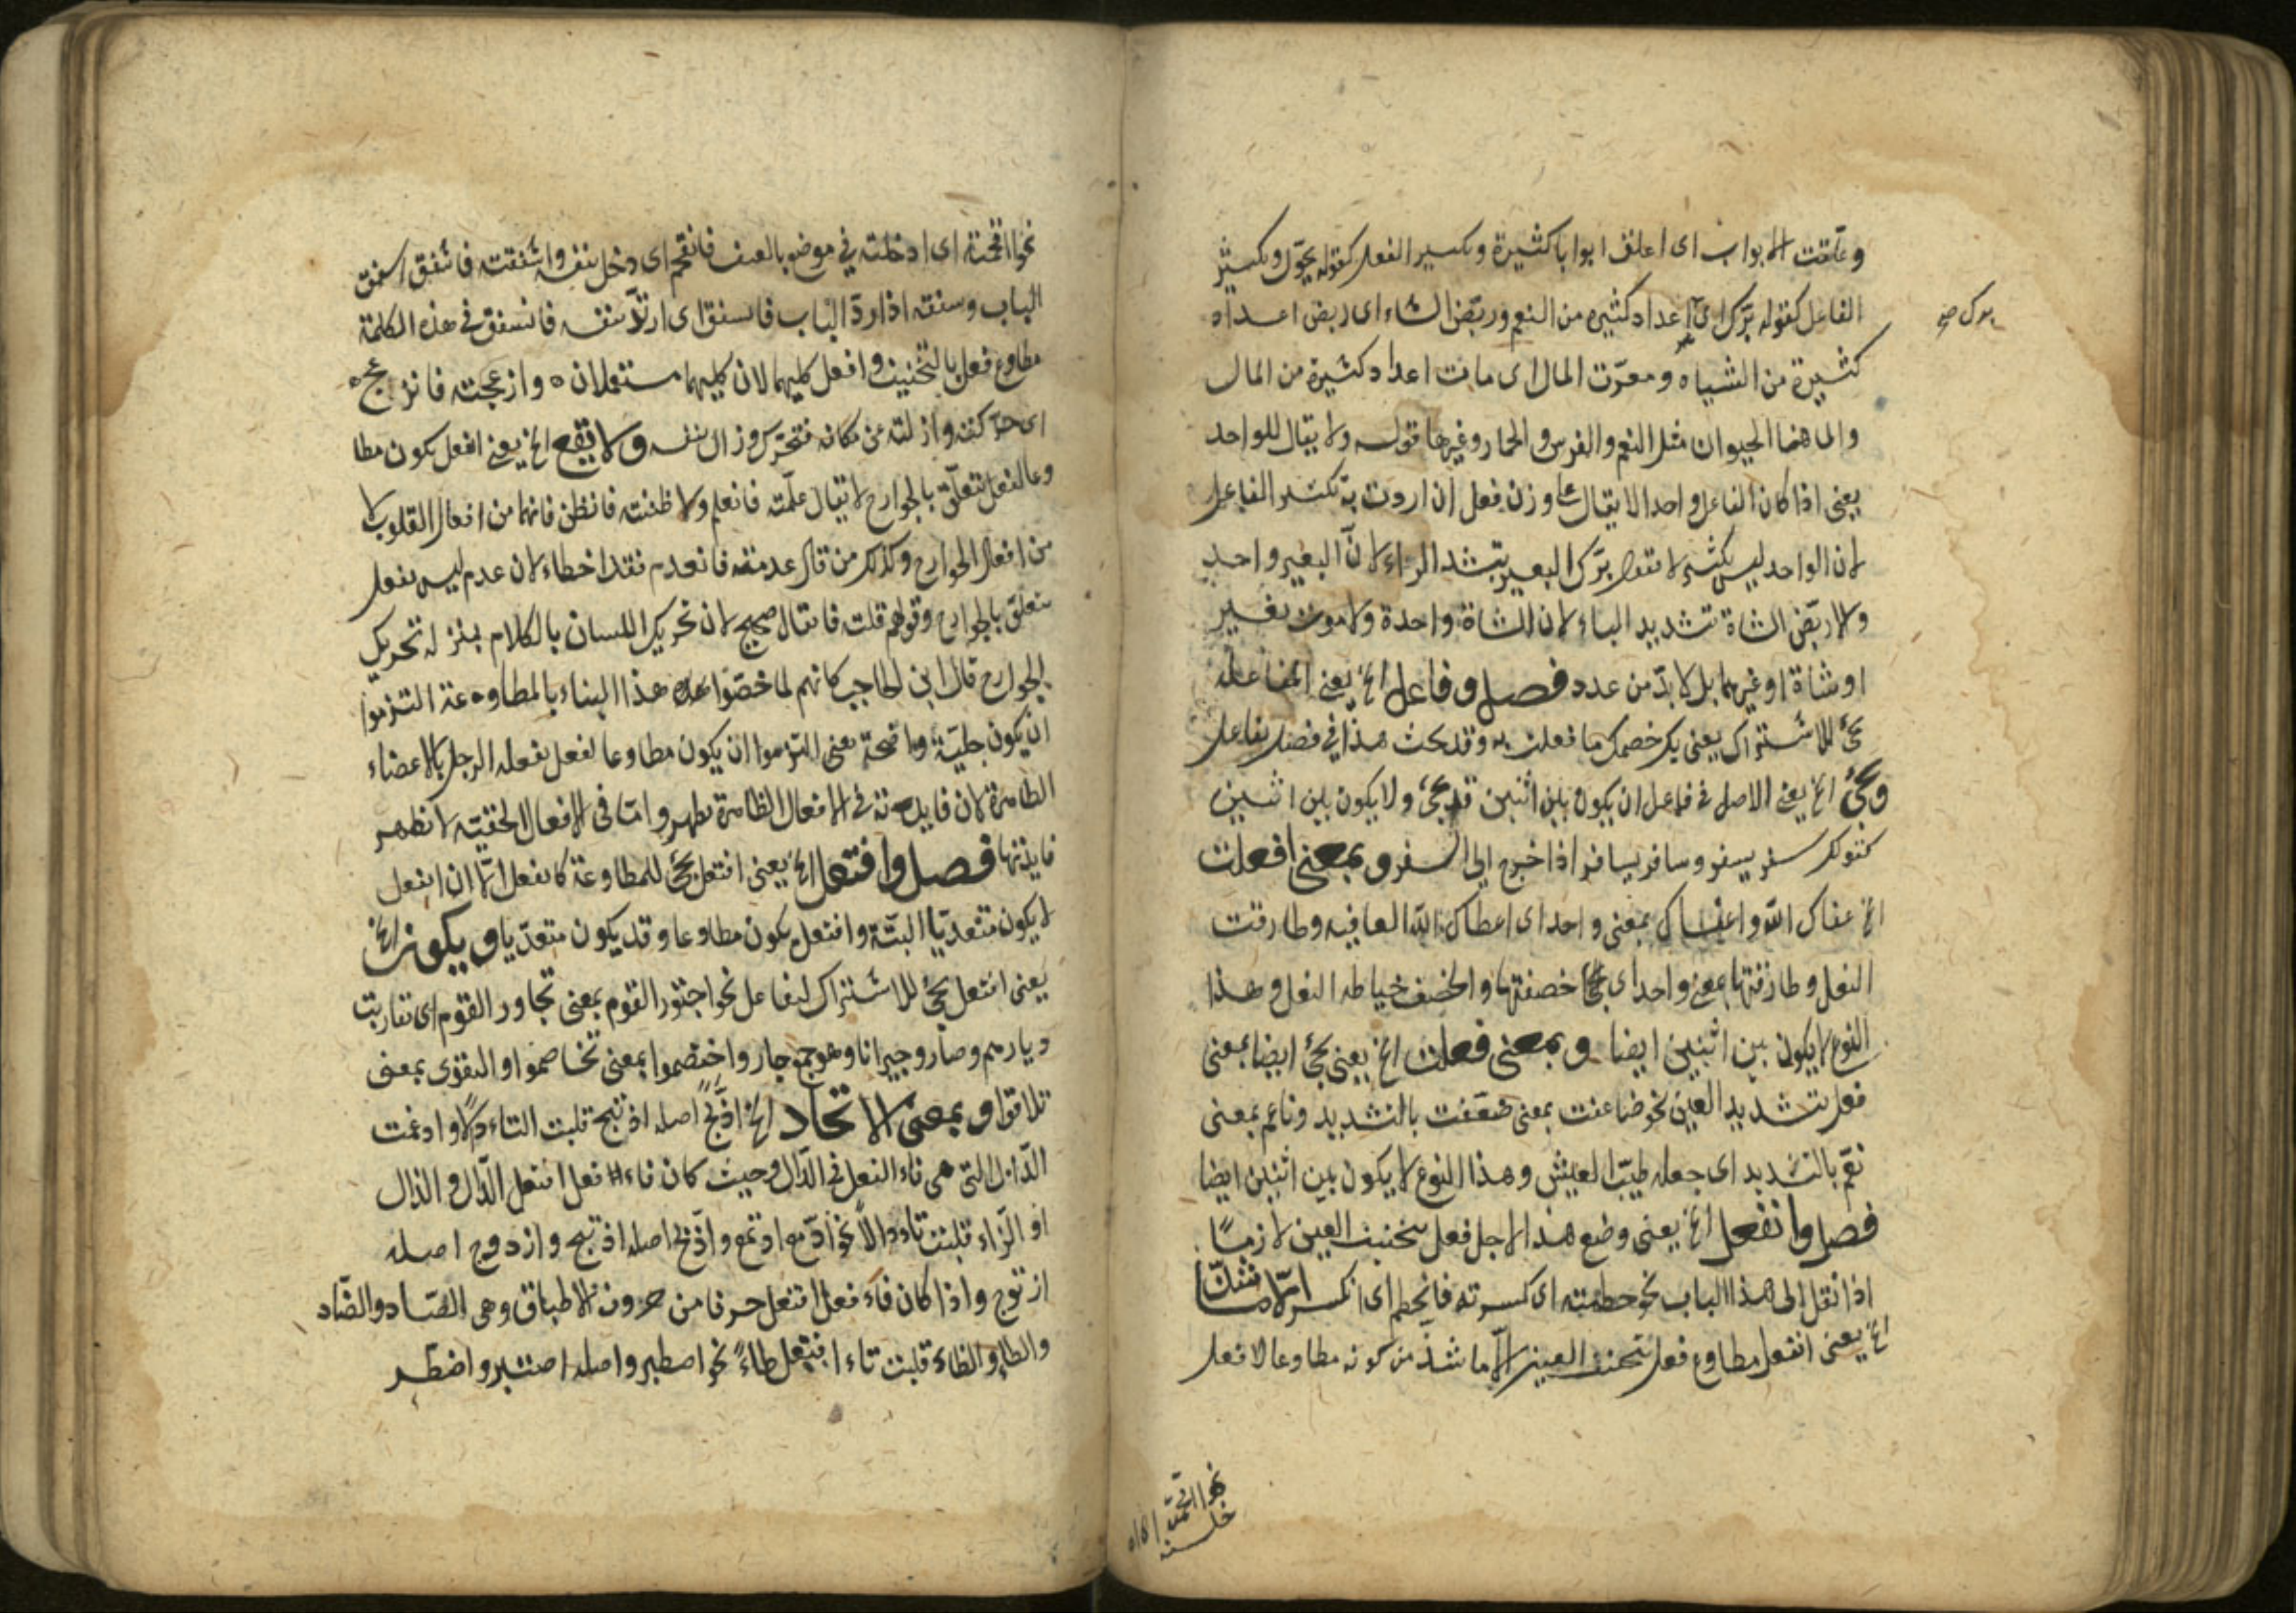 وغلقت الابواب اى اغلق ابوابا كثيرة وتكسير الفعل كقوله يجوّل ويكسر
الفاعل كقوله برّك اى اعداد كثيره من النعم وربّض الشاء اى ربض اعداد
برك صح
كثيرة من الشياه وموّت المال اى مات اعداد كثيرة من المال
والمال هنا الحيوان مثل النعم والفرس والحمار وغيرها قوله ولا يقال للواحد
يعنى اذا كان الفاعل واحدا لا يقال على وزن فعل ان اردت به تكثير الفاعل
لان الواحد ليس بكثير لا تقول برّك البعير بتشديد الراء لانّ البعير واحد
ولا ربّض الشاة بتشديد الباء لان الشاة واحدة ولا موت بعير
او شاة او غيرهما بل لا بدّ من عدد فصل وفاعل الخ يعنى المفاعلة
يجئ للاشتراك يعنى بك خصمك ما فعلت به وقد بحث هذا فى فصل يفاعل
ويجئ الخ يعنى الاصل فى فاعل ان يكون بين اثنين قد يجئ ولا يكون بين اثنين
كقولك سفر يسفر وسافر يسافر اذا خرج الى السفر وبمعنى افعلت
الخ عفاك الله واعفاك بمعنى واحد اى اعطاك الله العافيه وطارقت
النعل وطارقتها بمعنى واحد اى خصفتها والخصف خياطه النعل وهذا
النوع لا يكون بين اثنين ايضا وبمعنى فعلت الخ يعنى يجئ ايضا بمعنى
فعل بتشديد العين نحو ضاعفت بمعنى ضعّفت بالتشديد وناعم بمعنى
نعّم بالتشديد اى جعله طيّب العيش وهذا النوع لا يكون بين اثنين ايضا
فصل وانفعل الخ يعنى وضع هذا لاجل فعل بتخفيف العين لازما
اذا نقل الى هذا الباب نحو حطمته اى كسرته فانحطم اى انكسر الّا ما شذّ
الخ يعنى انفعل مطاوع فعل بتخفيف العين الّا ما شذّ من كونه مطاوعا لافعل
نحو اقحمته
نحو اقحمته اى ادخلته فى موضع بالعنف فانقحم اى دخل بنفسه واشفقته فانشفق اسفق
الباب وسفقه اذا ردّ الباب فانسفق اى ارتدّ بنفسه فانسفق فى هذه الكلمة
مطاوع فعل بالتخفيف وافعل كليهما لان كليهما مستعملان وازعجته فانزعج
اى حرّكته وازلته عن مكانه فتحرّك وزال بنفسه ولا يقع الخ يعنى انفعل يكون مطا
وعا لفعل يتعلّق بالجوارح لا يقال علّمته فانعلم ولا ظننته فانظن فانهما من افعال القلوب لا
من افعال الجوارح وكذلك من قال عدمته فانعدم فقد اخطاء لان عدم ليس بفعل
يتعلق بالجوارح وقولهم قلت فانقال صحيح لان تحريك اللسان بالكلام بمنزله تحريك
الجوارح قال ابن الحاجب كانهم لما خصّوا هذا البناء بالمطاوعة التزموا
ان يكون جليّة واضحة يعنى التزموا ان يكون مطاوعا لفعل يفعله الرجل بالاعضاء
الظاهرة لان فايدته فى الافعال الظاهرة يظهر وامّا فى الافعال الخفيّه لا تظهر
فايدتها فصل وافتعل الخ يعنى افتعل يجئ للمطاوعة كانفعل الّا ان انفعل
لا يكون متعدّيا البتّة وافتعل يكون مطاوعا وقد يكون متعدّيا ويكون الخ
يعنى افتعل يجئ للاشتراك كتفاعل نحو اجتور القوم بمعنى تجاور القوم اى تقاربت
ديارهم وصاروا جيرانا وهو جمع جار واختصموا بمعنى تخاصموا والتقوى بمعنى
تلاقوا وبمعنى الاتخاذ الخ اذّبح اصله اذتبح قلبت التاء دالا وادغمت
الذال التى هى فاء الفعل فى الدّال وحيث كان فاء الفعل افتعل الدّال والذال
او الزاء قلبت تاءه دالا نحو ادّمع ادتمع واذّبح اصله اذتبح وازدوج اصله
ازتوج واذا كان فاء فعل افتعل حرفا من حروف الاطباق وهى الصاد والضّاد
والطاء والظاء قلبت تاء افتعل طاء نحو اصطبر واصله اصتبر واضطر